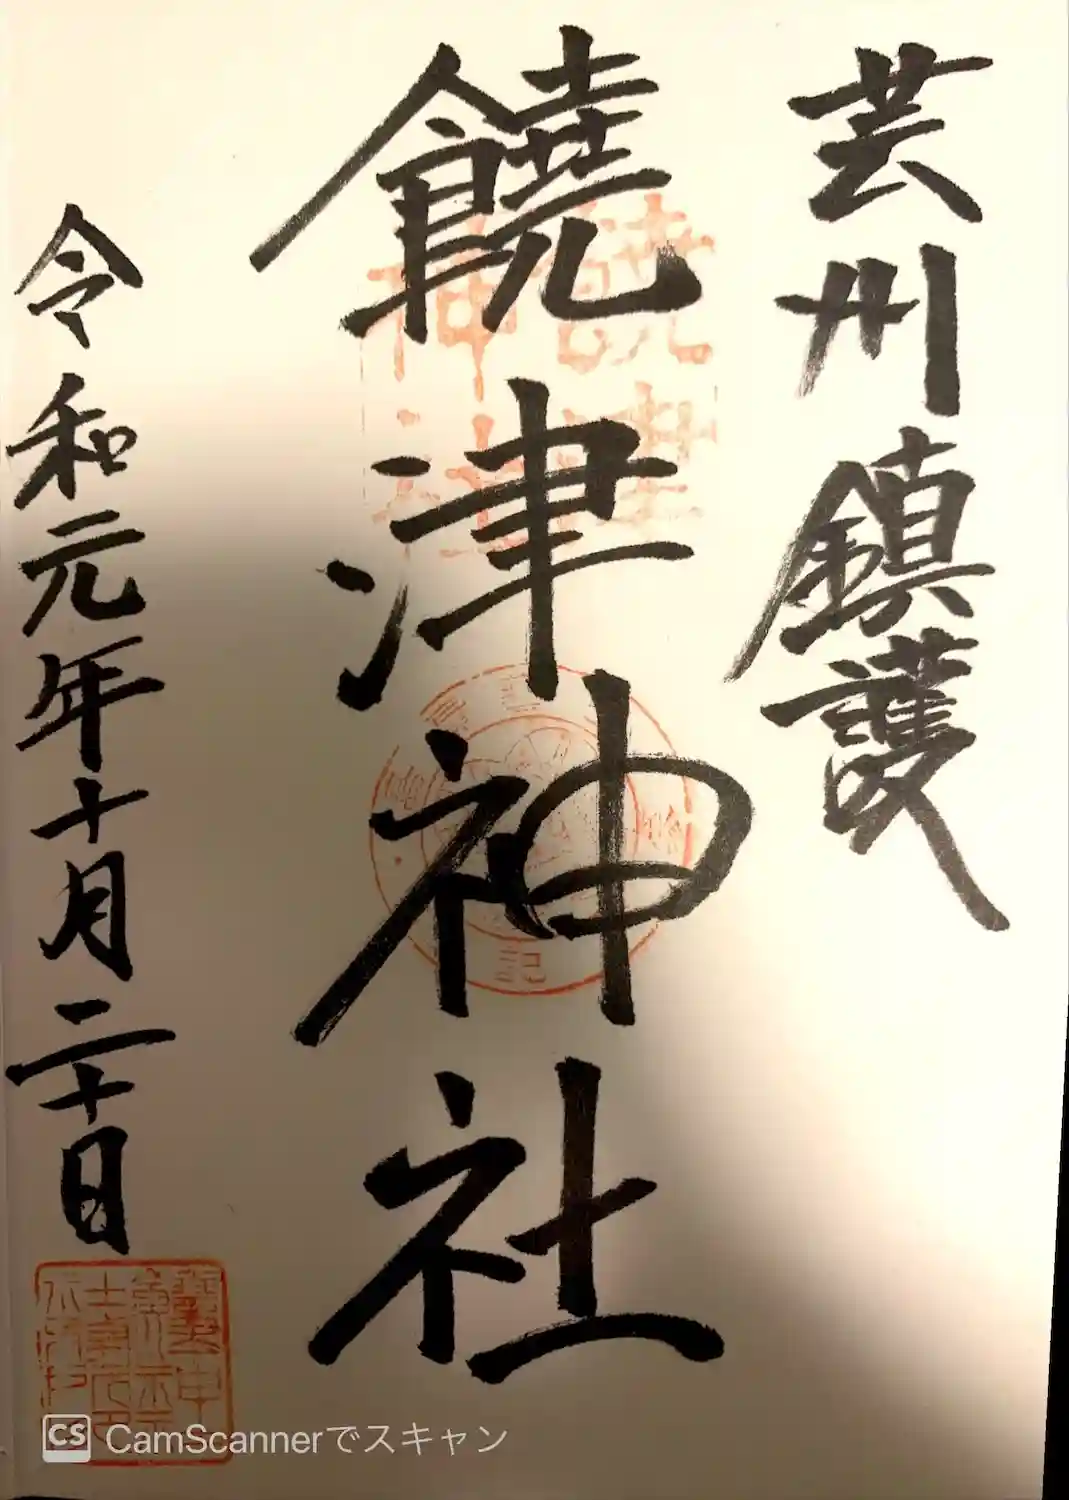 芸州鎮護
饒津神社
令和元年十月二十日
饒津
神社
記
CS CamScannerでスキャン